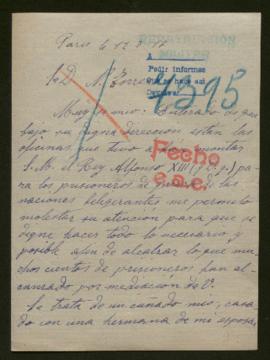 Paris 6 12 917
REPATRIACION
MILITAR
A
Pedir informes
4395
Sr D.
Muy Sr mio: Enterado de que
bajo su digna direccion estan las
oficinas que tuvo a bien montar
S. M. el Rey Alfonso XIII (q. D. g.) pa
ra los prisioneros de guerra de las
naciones beligerantes me permito
molestar su atención para que se
digne hacer todo lo necesario y
posible afin de alcalzar lo que mu
chos cientos de prisioneros han al-
canzado por mediación de Vd
Se trata de un cuñado mio, casa
do con una hermana de mi esposa,
Fecho
e.a.e.